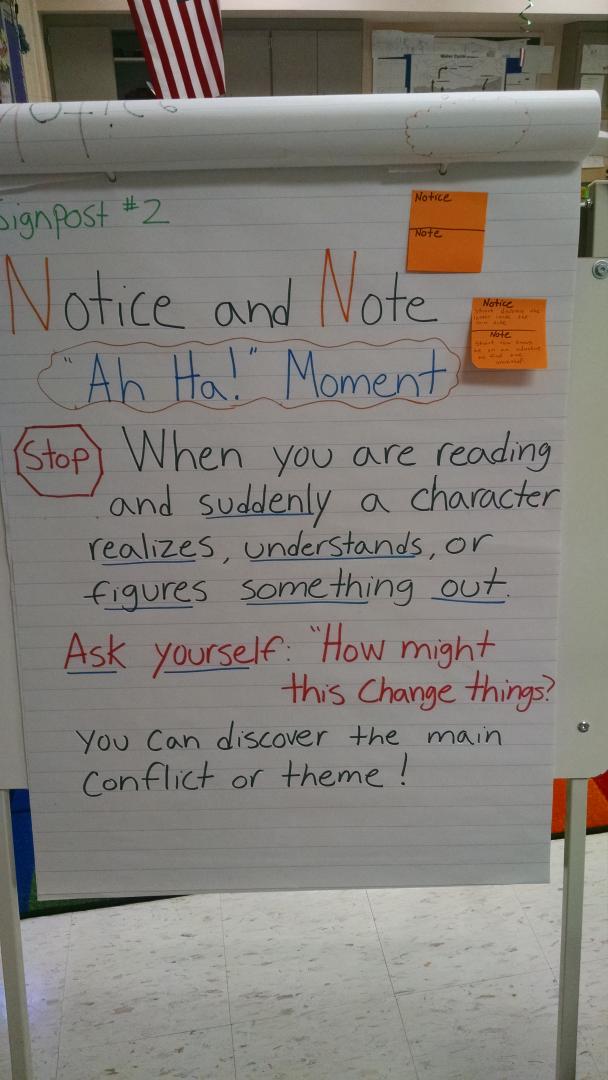 Signpost #2
Notice
Note
Notice and Note
Notice
Note
"Ah Ha!" Moment
Stop
When you are reading
and suddenly a character
realizes, understands, or
figures something out.
Ask yourself: "How might
this Change things?
You Can discover the main
Conflict or theme!